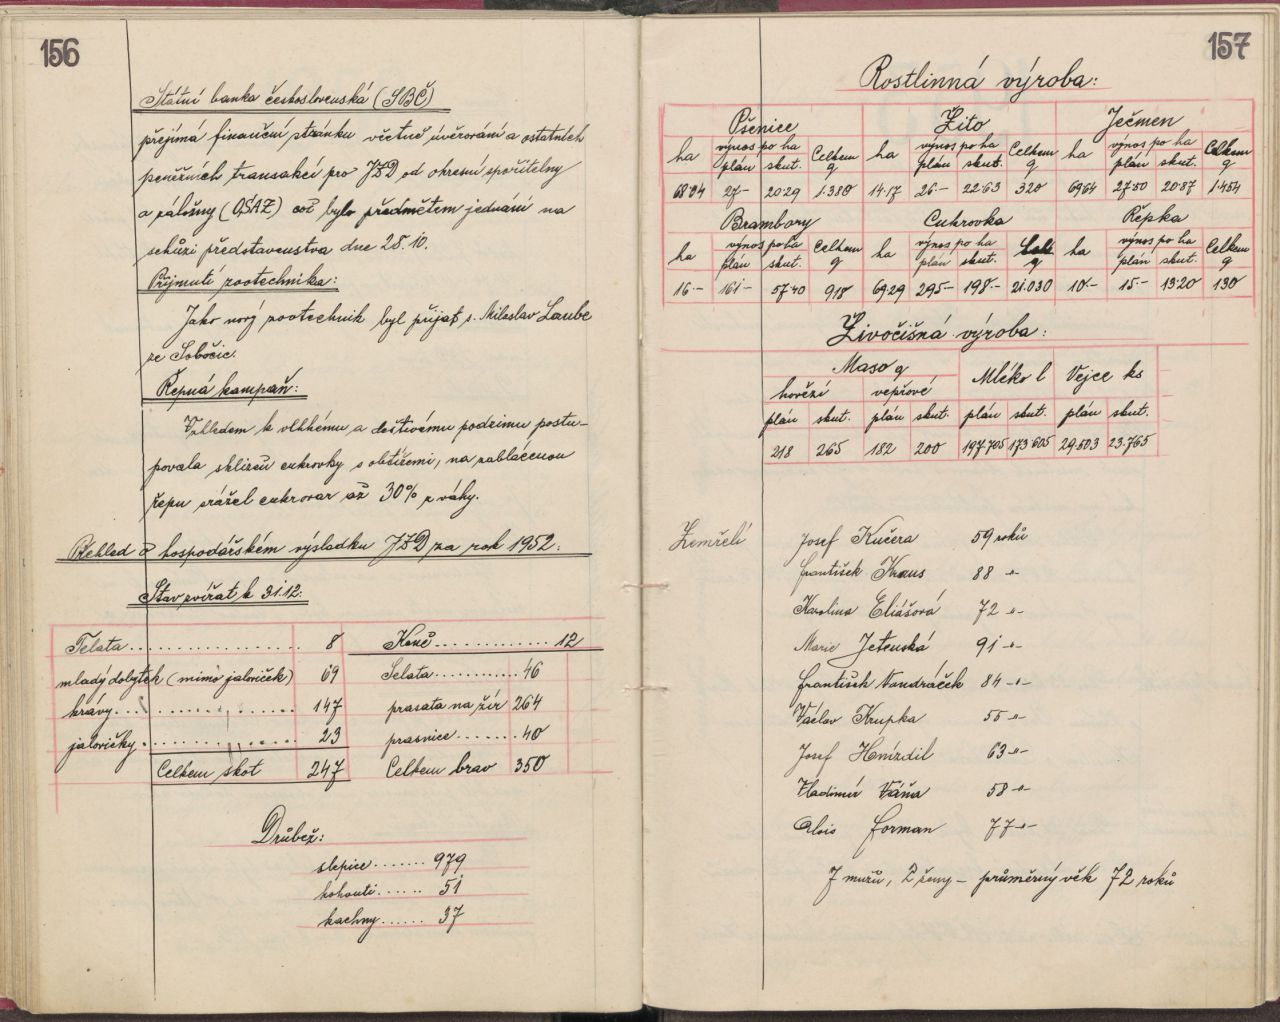 156
Státní banka československá (SBČ)
přejímá finanční stránku včetně úvěrování a ostatních
peněžních transakcí pro JZD od okresní spořitelny
a záložny (OSAZ) což bylo předmětem jednání na
schůzi představenstva dne 28.10.
Přijmutí zootechnika:
Jako nový zootechnik byl přijat s. Miloslav Laube
ze Sobočic.
Řepná kampaň:
Vzhledem k vlhkému a deštivému podzimu postu-
povala sklizeň cukrovky s obtížemi, na zablácenou
řepu srážel cukrovar až 30% z váhy.
Přehled o hospodářském výsledku JZD za rok 1952:
Stav zvířat k 31.12.
Telata 8 Koně 12
mladý dobytek (mimo jaloviček) 69 Selata 46
krávy 147 prasata na žír 264
jalovičky 23 prasnice 40
Celkem skot 247 Celkem brav 350
Drůbež:
slepice 979
kohouti 51
kachny 37
157
Rostlinná výroba:
Pšenice Žito Ječmen
ha výnos po ha Celkem q ha výnos po ha Celkem q ha výnos po ha Celkem q
plán skut. plán skut. plán skut.
68·04 27– 20·29 1·380 14·17 26– 22·63 320 69·64 27·50 20·87 1·454
Brambory Cukrovka Řepka
ha výnos po ha Celkem q ha výnos po ha q ha výnos po ha Celkem q
plán skut. plán skut. plán skut.
16– 161– 57·40 918 69·29 295– 198– 21·030 10– 15– 13·20 130
Živočišná výroba:
Maso q Mléko l Vejce ks
hovězí vepřové
plán skut. plán skut. plán skut. plán skut.
218 265 182 200 197·705 173·605 29·603 23·765
Zemřelí Josef Kučera 59 roků
František Kraus 88 -"-
Karolina Eliášová 72 -"-
Marie Jetenská 91 -"-
František Vondráček 84 -"-
Václav Krupka 55 -"-
Josef Hnízdil 63 -"-
Vladimír Váňa 58 -"-
Alois Forman 77 -"-
7 mužů, 2 ženy – průměrný věk 72 roků